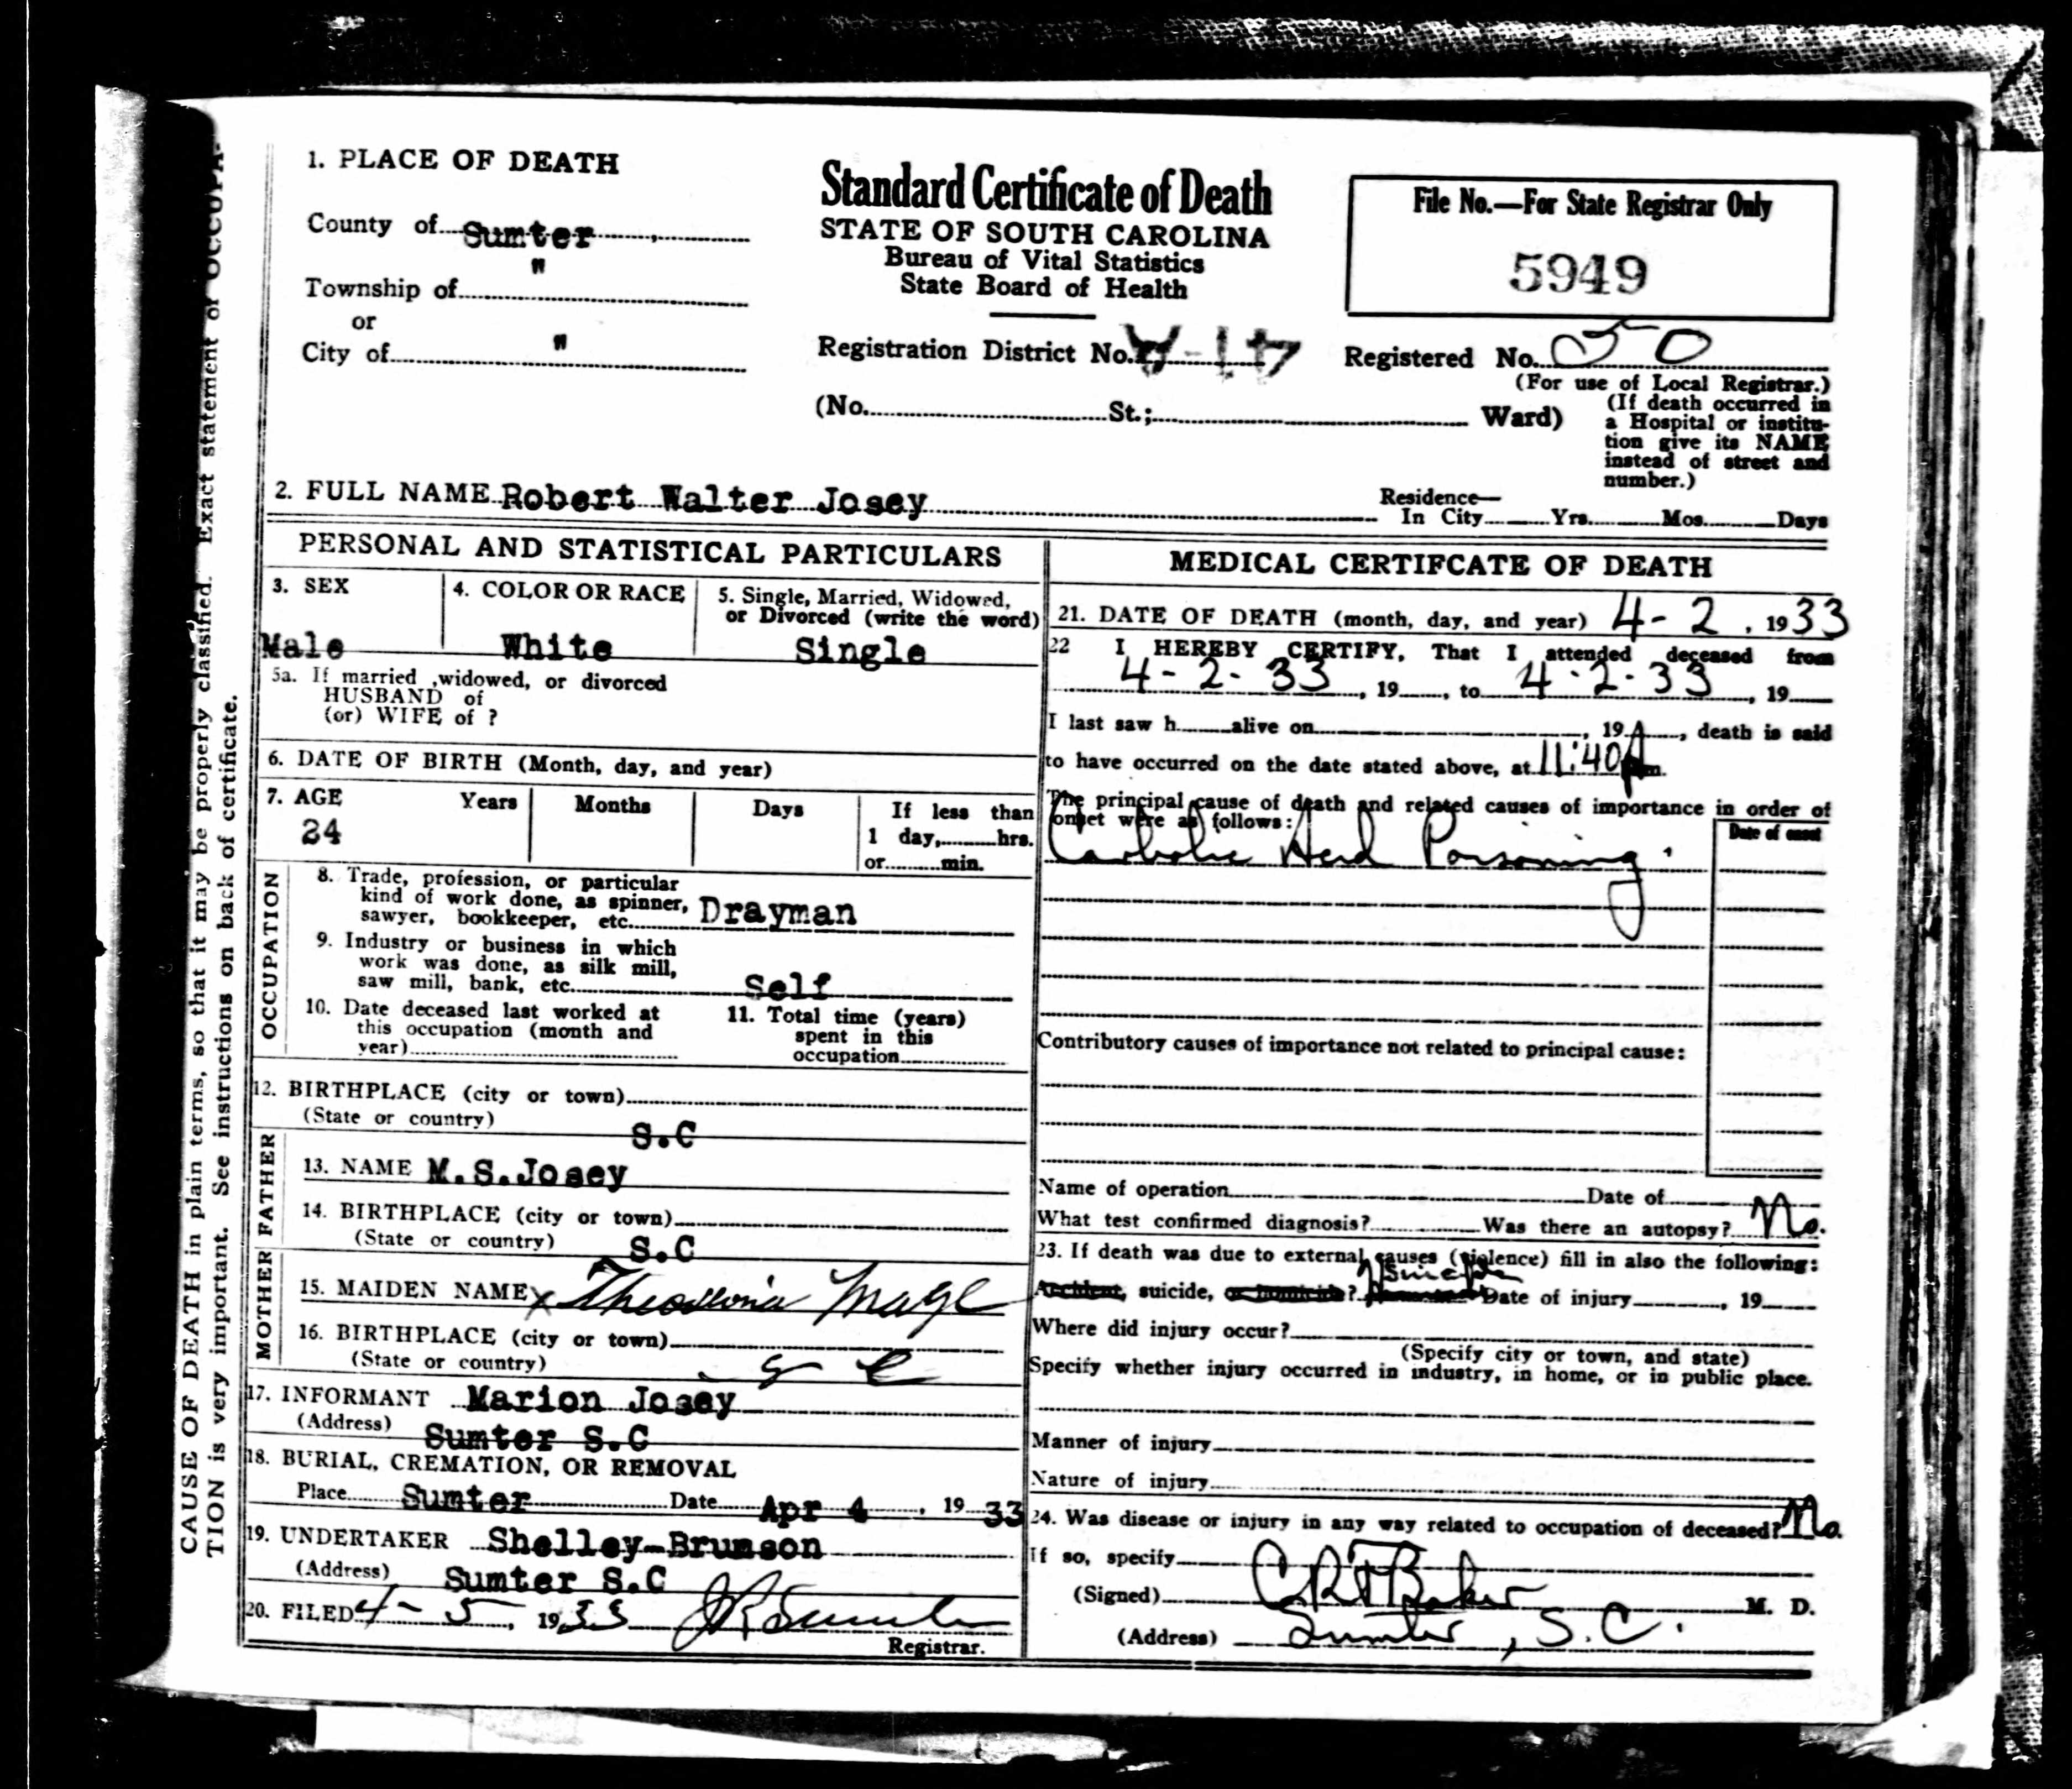 1. PLACE OF DEATH
County of Sumter
Township of "
or
City of "
Standard Certificate of Death
STATE OF SOUTH CAROLINA
Bureau of Vital Statistics
State Board of Health
File No.—For State Registrar Only
5949
Registration District No.
Registered No. 50
(For use of Local Registrar.)
(No. St.; Ward)
(If death occurred in
a Hospital or institu-
tion give its NAME
instead of street and
number.)
2. FULL NAME Robert Walter Josey
Residence—
In City Yrs. Mos. Days
PERSONAL AND STATISTICAL PARTICULARS
3. SEX
Male
4. COLOR OR RACE
White
5. Single, Married, Widowed,
or Divorced (write the word)
Single
5a. If married ,widowed, or divorced
HUSBAND of
(or) WIFE of ?
6. DATE OF BIRTH (Month, day, and year)
7. AGE Years Months Days If less than
24 1 day, hrs.
or min.
OCCUPATION
8. Trade, profession, or particular
kind of work done, as spinner,
sawyer, bookkeeper, etc. Drayman
9. Industry or business in which
work was done, as silk mill,
saw mill, bank, etc. Self
10. Date deceased last worked at
this occupation (month and
year)
11. Total time (years)
spent in this
occupation
12. BIRTHPLACE (city or town)
(State or country) S.C
FATHER
13. NAME M.S.Josey
14. BIRTHPLACE (city or town)
(State or country) S.C
MOTHER
15. MAIDEN NAME x
16. BIRTHPLACE (city or town)
(State or country) S C
17. INFORMANT Marion Josey
(Address) Sumter S.C
18. BURIAL, CREMATION, OR REMOVAL
Place Sumter Date Apr 4, 1933
19. UNDERTAKER Shelley-Brunson
(Address) Sumter S.C
20. FILED 4-5, 1933
Registrar.
MEDICAL CERTIFCATE OF DEATH
21. DATE OF DEATH (month, day, and year) 4-2, 1933
22 I HEREBY CERTIFY, That I attended deceased from
4-2-33, 19 , to 4-2-33, 19
I last saw h alive on , 19 , death is said
to have occurred on the date stated above, at 11:40 A m.
The principal cause of death and related causes of importance in order of
onset were as follows:
Date of onset
Carbolic Acid Poisoning.
Contributory causes of importance not related to principal cause:
Name of operation Date of
What test confirmed diagnosis? Was there an autopsy? No.
23. If death was due to external causes (violence) fill in also the following:
Suicide
Accident, suicide, or homicide? Date of injury , 19
Where did injury occur?
(Specify city or town, and state)
Specify whether injury occurred in industry, in home, or in public place.
Manner of injury
Nature of injury
24. Was disease or injury in any way related to occupation of deceased? No.
If so, specify
(Signed) Baker M. D.
(Address) Sumter, S.C.
CAUSE OF DEATH in plain terms, so that it may be properly classified. Exact statement of OCCUPA-
TION is very important. See instructions on back of certificate.